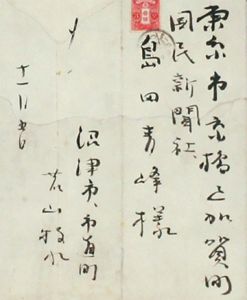 東京市京橋区加賀町
国民新聞社
島田青峰様
沼津市、市道町
若山牧水